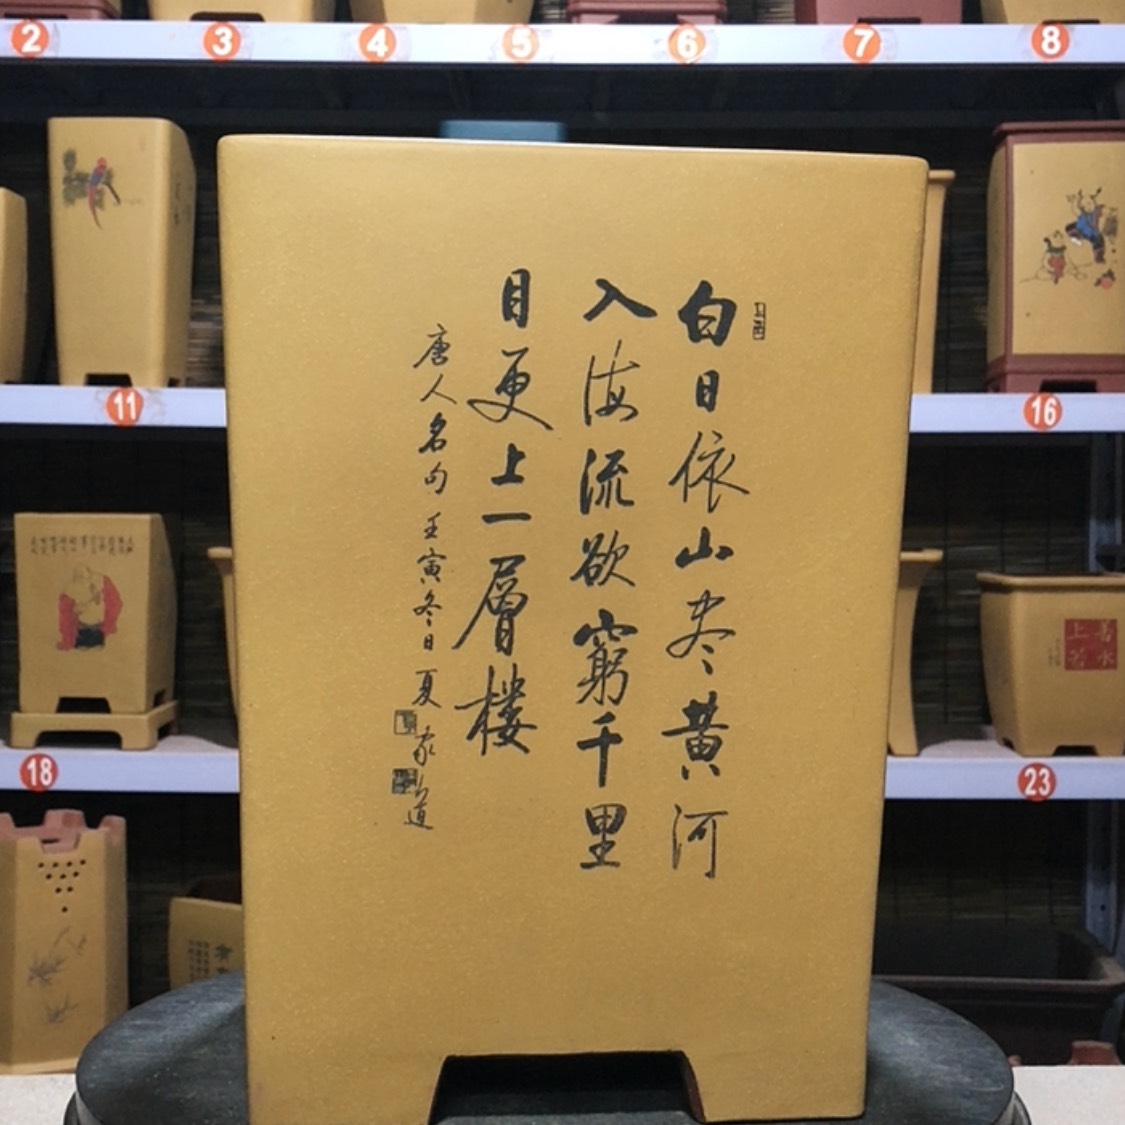 白日依山尽黄河
入海流欲窮千里
目更上一層楼
唐人名句 壬寅冬日 夏家道
2
3
4
5
6
7
8
11
16
18
23
上善
若水